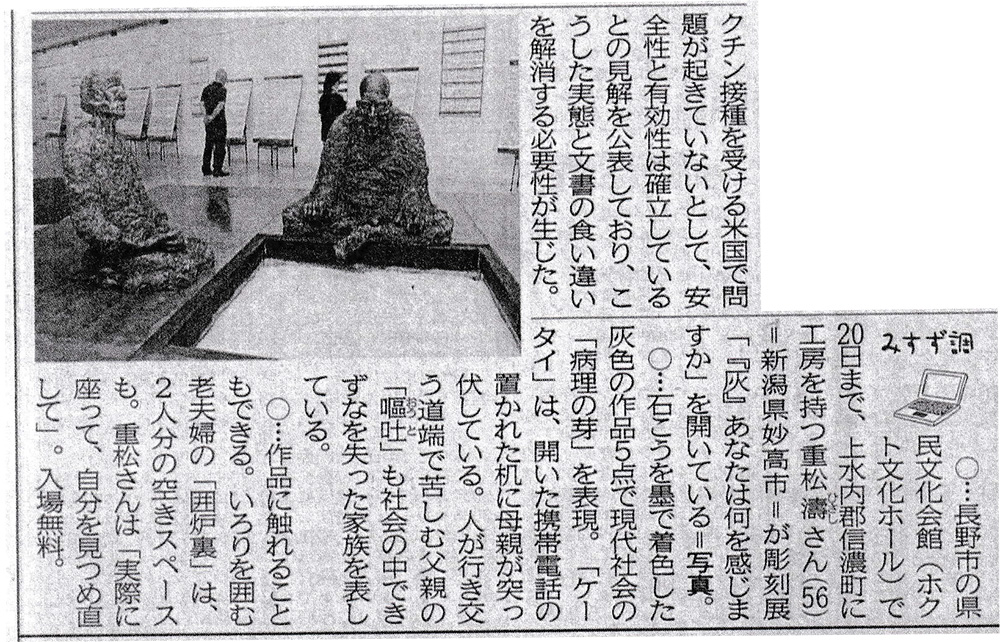 クチン接種を受ける米国で問
題が起きていないとして、安
全性と有効性は確立している
との見解を公表しており、こ
うした実態と文書の食い違い
を解消する必要性が生じた。
みすず調
○…長野市の県
民文化会館(ホク
ト文化ホール)で
20日まで、上水内郡信濃町に
工房を持つ重松濤さん(56)
ひさし
=新潟県妙高市=が彫刻展
「『灰』あなたは何を感じま
すか」を開いている=写真。
○…石こうを墨で着色した
灰色の作品5点で現代社会の
「病理の芽」を表現。「ケー
タイ」は、開いた携帯電話の
置かれた机に母親が突っ
伏している。人が行き交
う道端で苦しむ父親の
「嘔吐」も社会の中でき
おうと
ずなを失った家族を表し
ている。
○…作品に触れること
もできる。いろりを囲む
老夫婦の「囲炉裏」は、
2人分の空きスペース
も。重松さんは「実際に
座って、自分を見つめ直
して」。入場無料。